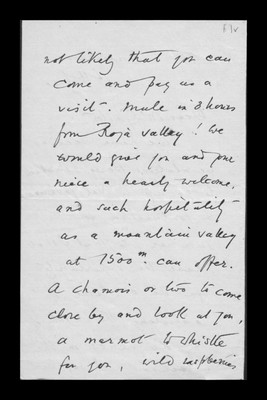 not likely that you can
come and pay us a
visit. Mule in 3 hours
from Roja valley! We
would give you and your
niece a hearty welcome,
and such hospitality
as a mountain valley
at 1500m. can offer.
A chamois or two to come
close by and look at you,
a marmot to whistle
for you, wild raspberries